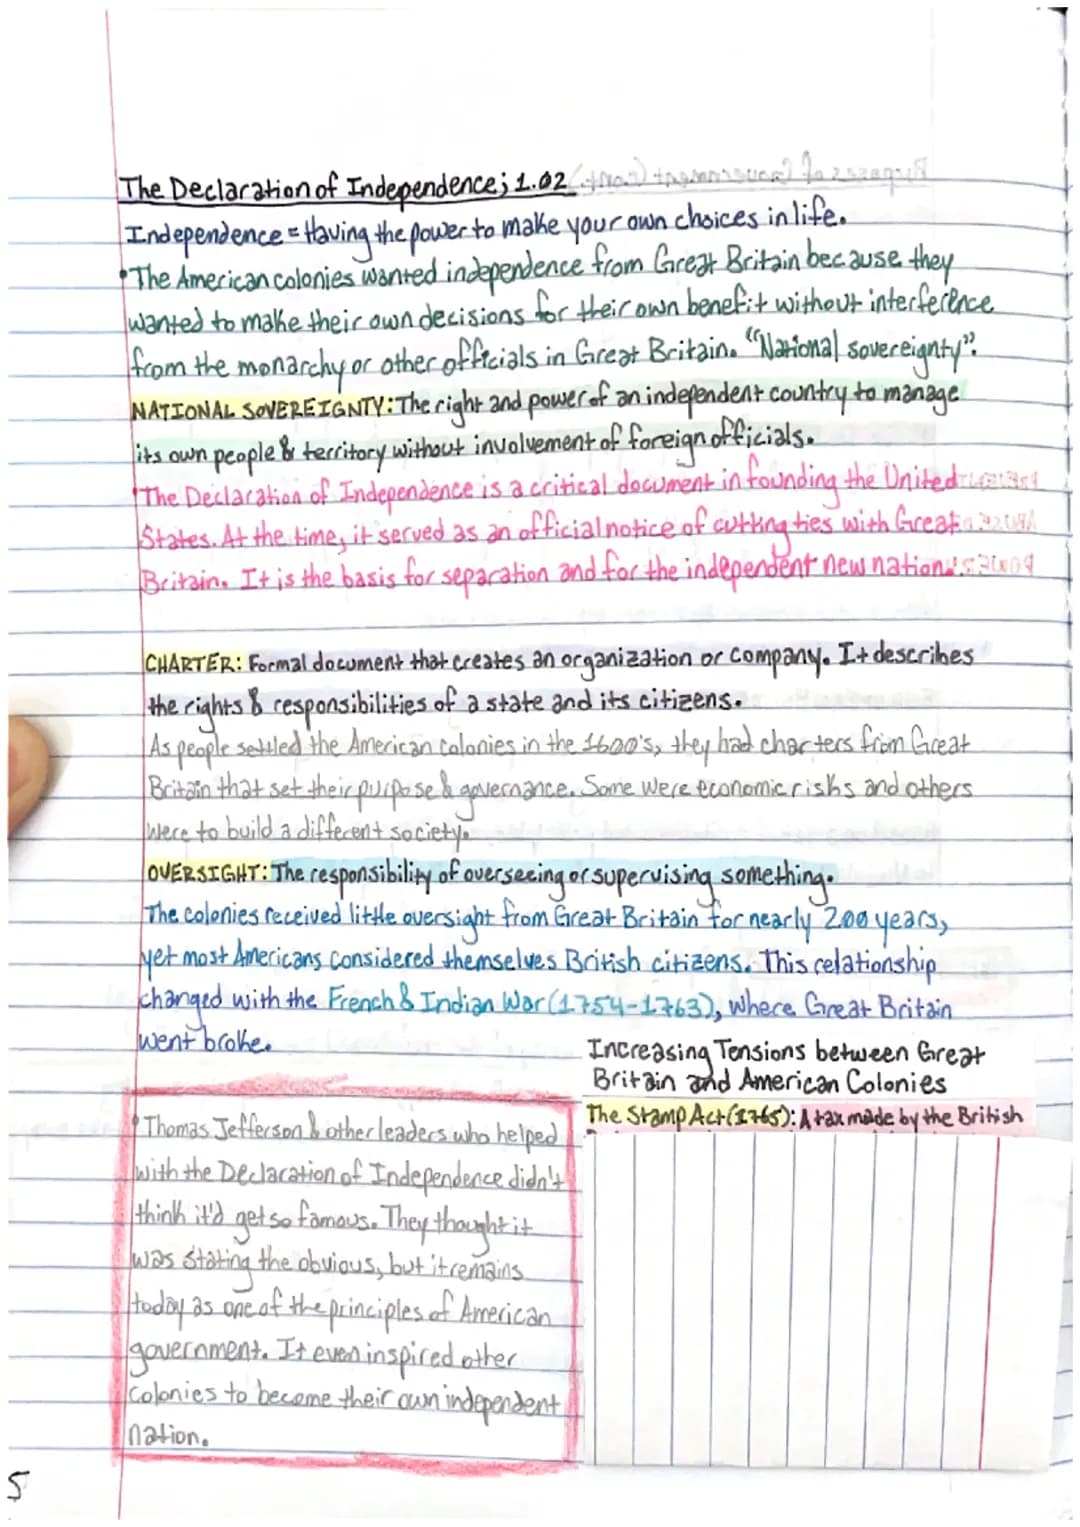 The Declaration of Independence; 1.02
Independence = Having the power to make your own choices in life.
•The American colonies wanted independence from Great Britain because they
wanted to make their own decisions for their own benefit without interference
from the monarchy or other officials in Great Britain. "National sovereignty".
NATIONAL SOVEREIGNTY: The right and power of an independent country to manage
its own people & territory without involvement of foreign officials.
•The Declaration of Independence is a critical document in founding the United
States. At the time, it served as an official notice of cutting ties with Great
Britain. It is the basis for separation and for the independent new nation.
CHARTER: Formal document that creates an organization or company. It describes
the rights & responsibilities of a state and its citizens.
As people settled the American colonies in the 1600's, they had charters from Great
Britain that set their purpose & governance. Some were economic risks and others
were to build a different society.
OVERSIGHT: The responsibility of overseeing or supervising something.
The colonies received little oversight from Great Britain for nearly 200 years,
yet most Americans considered themselves British citizens. This relationship
changed with the French & Indian War (1754-1763), where Great Britain
went broke.
Increasing Tensions between Great
Britain and American Colonies
The Stamp Act (1765): A tax made by the British
•Thomas Jefferson & other leaders who helped
with the Declaration of Independence didn't
think it'd get so famous. They thought it
was stating the obvious, but it remains
today as one of the principles of American
government. It even inspired other
colonies to become their own independent
nation.
5